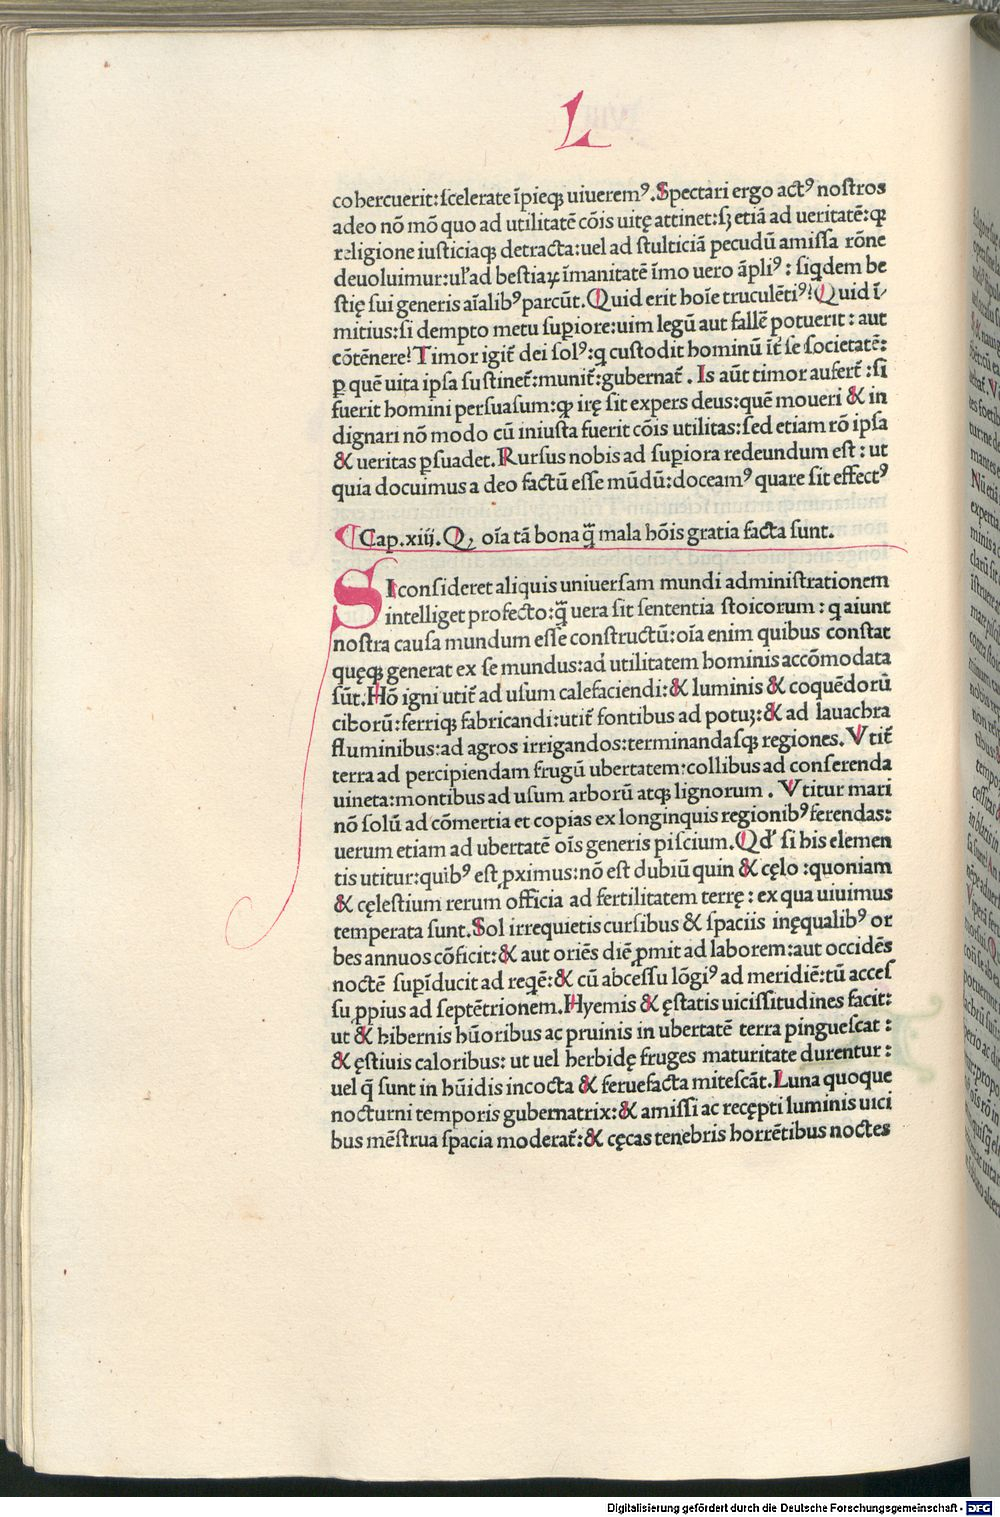 L
cohercuerit: scelerate īpieqꝫ uiueremꝰ. Spectari ergo actꝰ nostros
adeo nō mō quo ad utilitatē cōis uitę attinet: sꝫ etiā ad ueritatē: ꝙ
religione iusticiaqꝫ detracta: uel ad stulticiā pecudū amissa rōne
deuoluimur: uꝉ ad bestiaꝝ īmanitatē īmo uero āpliꝰ: siqdem be
stię sui generis aīalibꝰ parcūt. Quid erit hoīe truculētiꝰ? Quid ī
mitius: si dempto metu supiore: uim legū aut fallē potuerit: aut
cōtēnere? Timor igit̄ dei solꝰ: q custodit hominū īt se societatē:
ꝑ quē uita ipsa sustinet̄: munit̄: gubernat̄. Is aūt timor aufert̄: si
fuerit homini persuasum: ꝙ irę sit expers deus: quē moueri & in
dignari nō modo cū iniusta fuerit cōis utilitas: sed etiam rō ipsa
& ueritas ꝑsuadet. Rursus nobis ad supiora redeundum est: ut
quia docuimus a deo factū esse mūdū: doceamꝰ quare sit effectꝰ
¶ Cap. xiij. Q, oīa tā bona q̄ mala hōis gratia facta sunt.
SI consideret aliquis uniuersam mundi administrationem
intelliget profecto: q̄ uera sit sententia stoicorum: q aiunt
nostra causa mundum esse constructū: oīa enim quibus constat
quęqꝫ generat ex se mundus: ad utilitatem hominis accōmodata
sūt. Hō igni utit̄ ad usum calefaciendi: & luminis & coquēdorū
ciborū: ferriqꝫ fabricandi: utit̄ fontibus ad potuꝫ: & ad lauachra
fluminibus: ad agros irrigandos: terminandasqꝫ regiones. Vtit̄
terra ad percipiendam frugū ubertatem: collibus ad conserenda
uineta: montibus ad usum arborū atqꝫ lignorum. Vtitur mari
nō solū ad cōmertia et copias ex longinquis regionibꝰ ferendas:
uerum etiam ad ubertatē oīs generis piscium. Qd' si his elemen
tis utitur: quibꝰ est ꝓximus: nō est dubiū quin & cęlo: quoniam
& cęlestium rerum officia ad fertilitatem terrę: ex qua uiuimus
temperata sunt. Sol irrequietis cursibus & spaciis inęqualibꝰ or
bes annuos cōficit: & aut oriēs diē ꝓmit ad laborem: aut occidēs
noctē supīducit ad reqē: & cū abcessu lōgiꝰ ad meridiē: tū acces
su ꝓpius ad septētrionem. Hyemis & ęstatis uicissitudines facit:
ut & hibernis hūoribus ac pruinis in ubertatē terra pinguescat:
& ęstiuis caloribus: ut uel herbidę fruges maturitate durentur:
uel q̄ sunt in hūidis incocta & feruefacta mitescāt. Luna quoque
nocturni temporis gubernatrix: & amissi ac recępti luminis uici
bus mēstrua spacia moderat̄: & cęcas tenebris horrētibus noctes
Digitalisierung gefördert durch die Deutsche Forschungsgemeinschaft - DFG